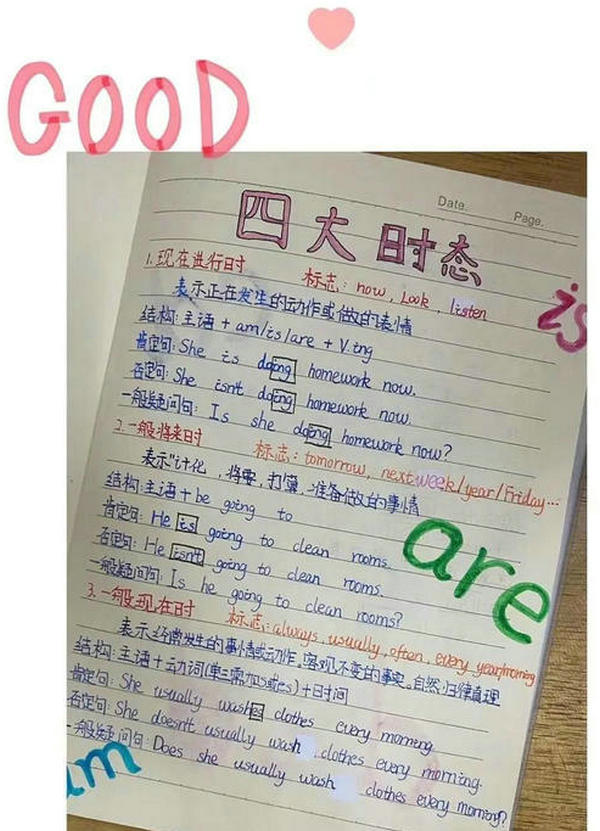 GOOD
Date.
Page.
四大时态
1.现在进行时 标志：now, Look, listen
表示正在发生的动作或做的事情
结构：主语 + am/is/are + V.ing
肯定句：She is doing homework now.
否定句：She isn't doing homework now.
一般疑问句：Is she doing homework now?
2.一般将来时 标志：tomorrow, next week/year/Friday...
表示"计化，将要，打算，准备做的事情
结构：主语 + be going to
肯定句：He is going to clean rooms.
否定句：He isn't going to clean rooms.
一般疑问句：Is he going to clean rooms?
3.一般现在时 标志：always, usually, often, every year/morning
表示经常发生的事情或动作，客观不变的事实，自然规律真理
结构：主语 + 动词(单三需加s或es) + 时间
肯定句：She usually washes clothes every morning
否定句：She doesn't usually wash clothes every morning.
一般疑问句：Does she usually wash clothes every morning?
is
are
am